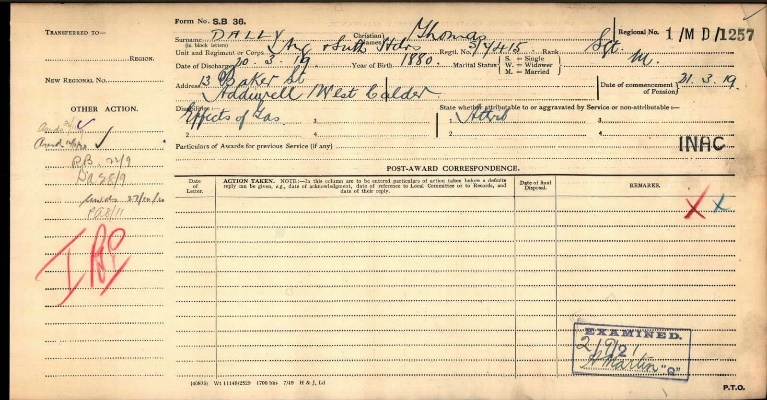 Form No. S.B 36.
TRANSFERRED TO—
REGION.
NEW REGIONAL NO.
OTHER ACTION.
P.B. 2/9
22/10/20
Surname (in block letters) DALLY Christian Names Thomas Regional No. 1/MD/1257
Unit and Regiment or Corps Arg & Suth Hdrs Regtl. No. S/7415 Rank Sgt
Date of Discharge 20.3.19 Year of Birth 1880. Marital Status S. = Single W. = Widower M. = Married M.
Address 13 Baker St Date of commencement of Pension 21.3.19.
Addiewell West Calder
Disabilities:— State whether attributable to or aggravated by Service or non-attributable:—
1. Effects of Gas. 3. 1. Attrib 3.
2. 4. 2. 4.
Particulars of Awards for previous Service (if any) INAC
POST-AWARD CORRESPONDENCE.
Date of Letter.
ACTION TAKEN. NOTE:—In this column are to be entered particulars of action taken before a definite reply can be given, e.g., date of acknowledgment, date of reference to Local Committee or to Records, and date of their reply.
Date of final Disposal.
REMARKS.
X X
EXAMINED.
2/9/21
H Martin "Q"
(40805) Wt 11149/2529 1700 bks 7/19 H & J, Ld
P.T.O.